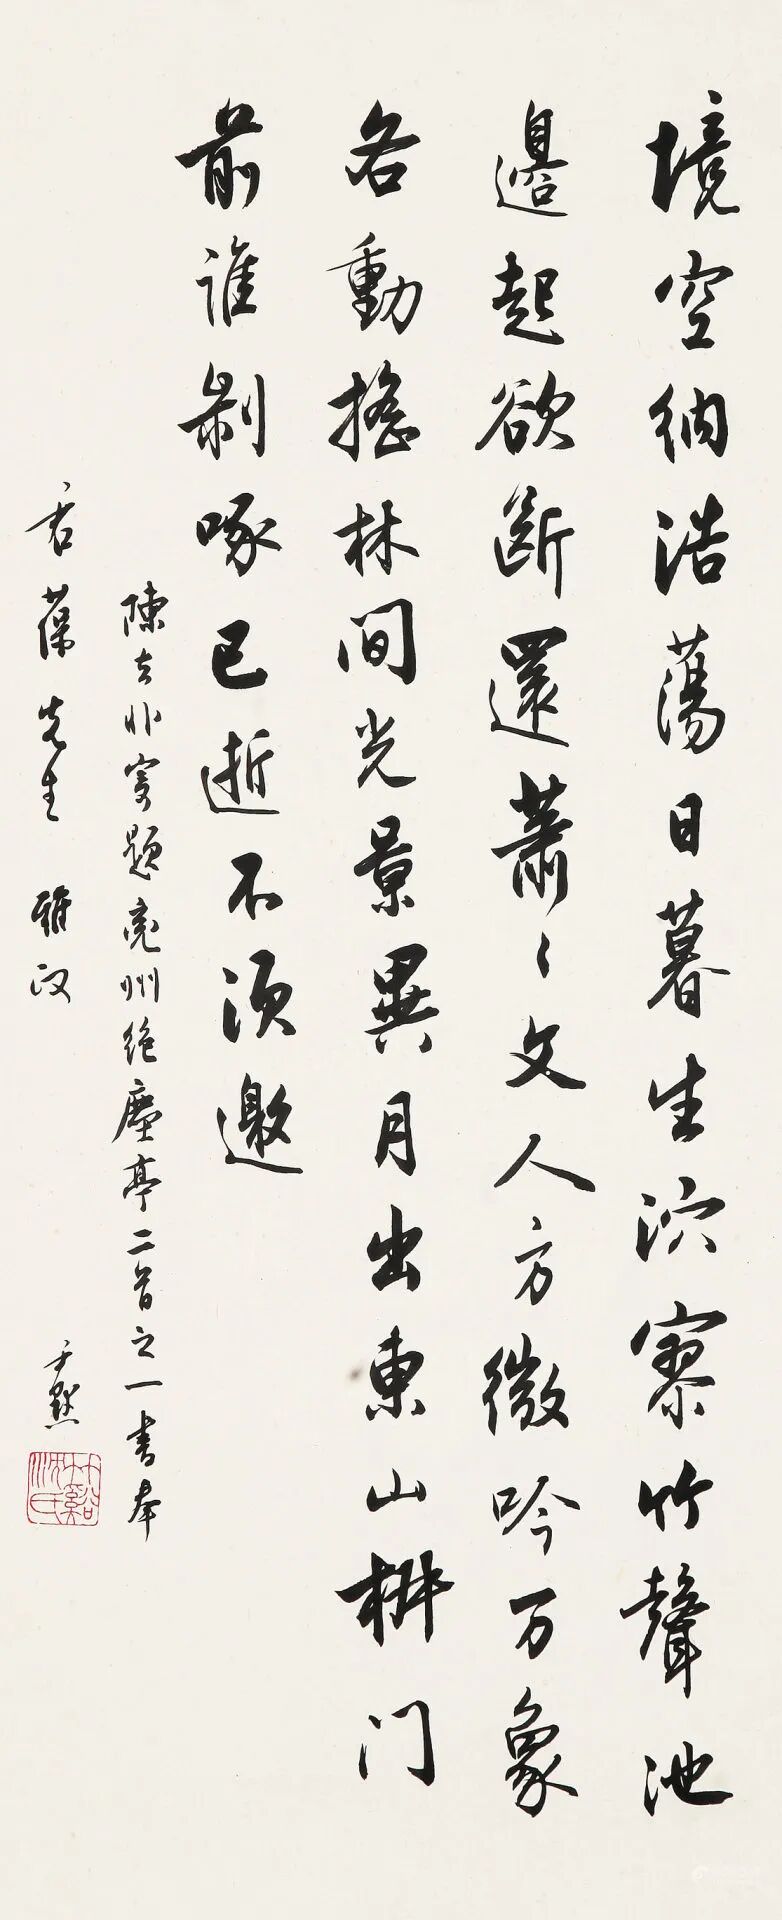 境空納浩蕩日暮生泬寥竹聲池
邊起欲斷還蕭〻文人方微吟万象
各動搖林間光景異月出東山椒门
前誰剝啄已逝不須邀
陳去非寄題兖州絶塵亭二首之一書奉
君葆先生 雅政
尹默
竹谿沈氏